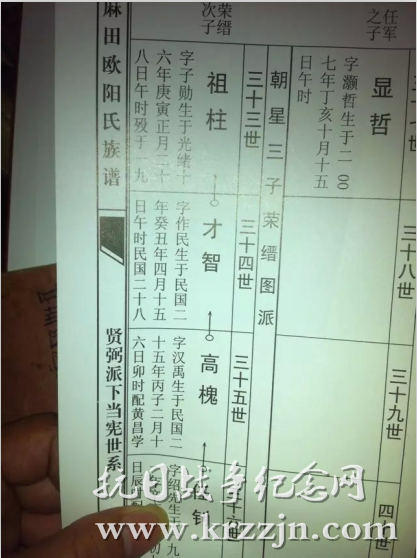 任军
之子
三十八世
三十九世
四十
显哲
字灏哲生于二00
七年丁亥十月十五
日午时
朝星三子荣缙图派
三十三世
三十四世
三十五世
荣缙
次子
祖柱
字子勋生于光绪十
六年庚寅正月二十
八日午时殁于一九
才智
字作民生于民国二
年癸丑年四月十五
日午时民国二十八
高槐
字汉禹生于民国二
十五年丙子二月十
六日卯时配黄昌学
字绍先生于
九
麻田欧阳氏族谱
贤弼派下当宪世系
抗日战争纪念网
www.krzzjn.com